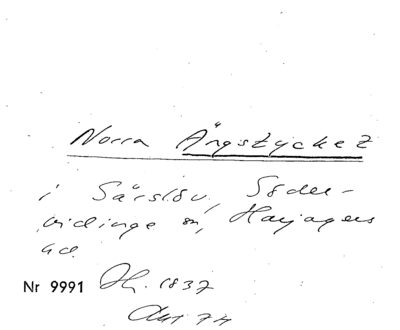 Norra Ängstycket
i Särslöv, Söder-
vidinge sn, Harjagers
hd.
Nr 9991 Hy. 1837
Akt 74